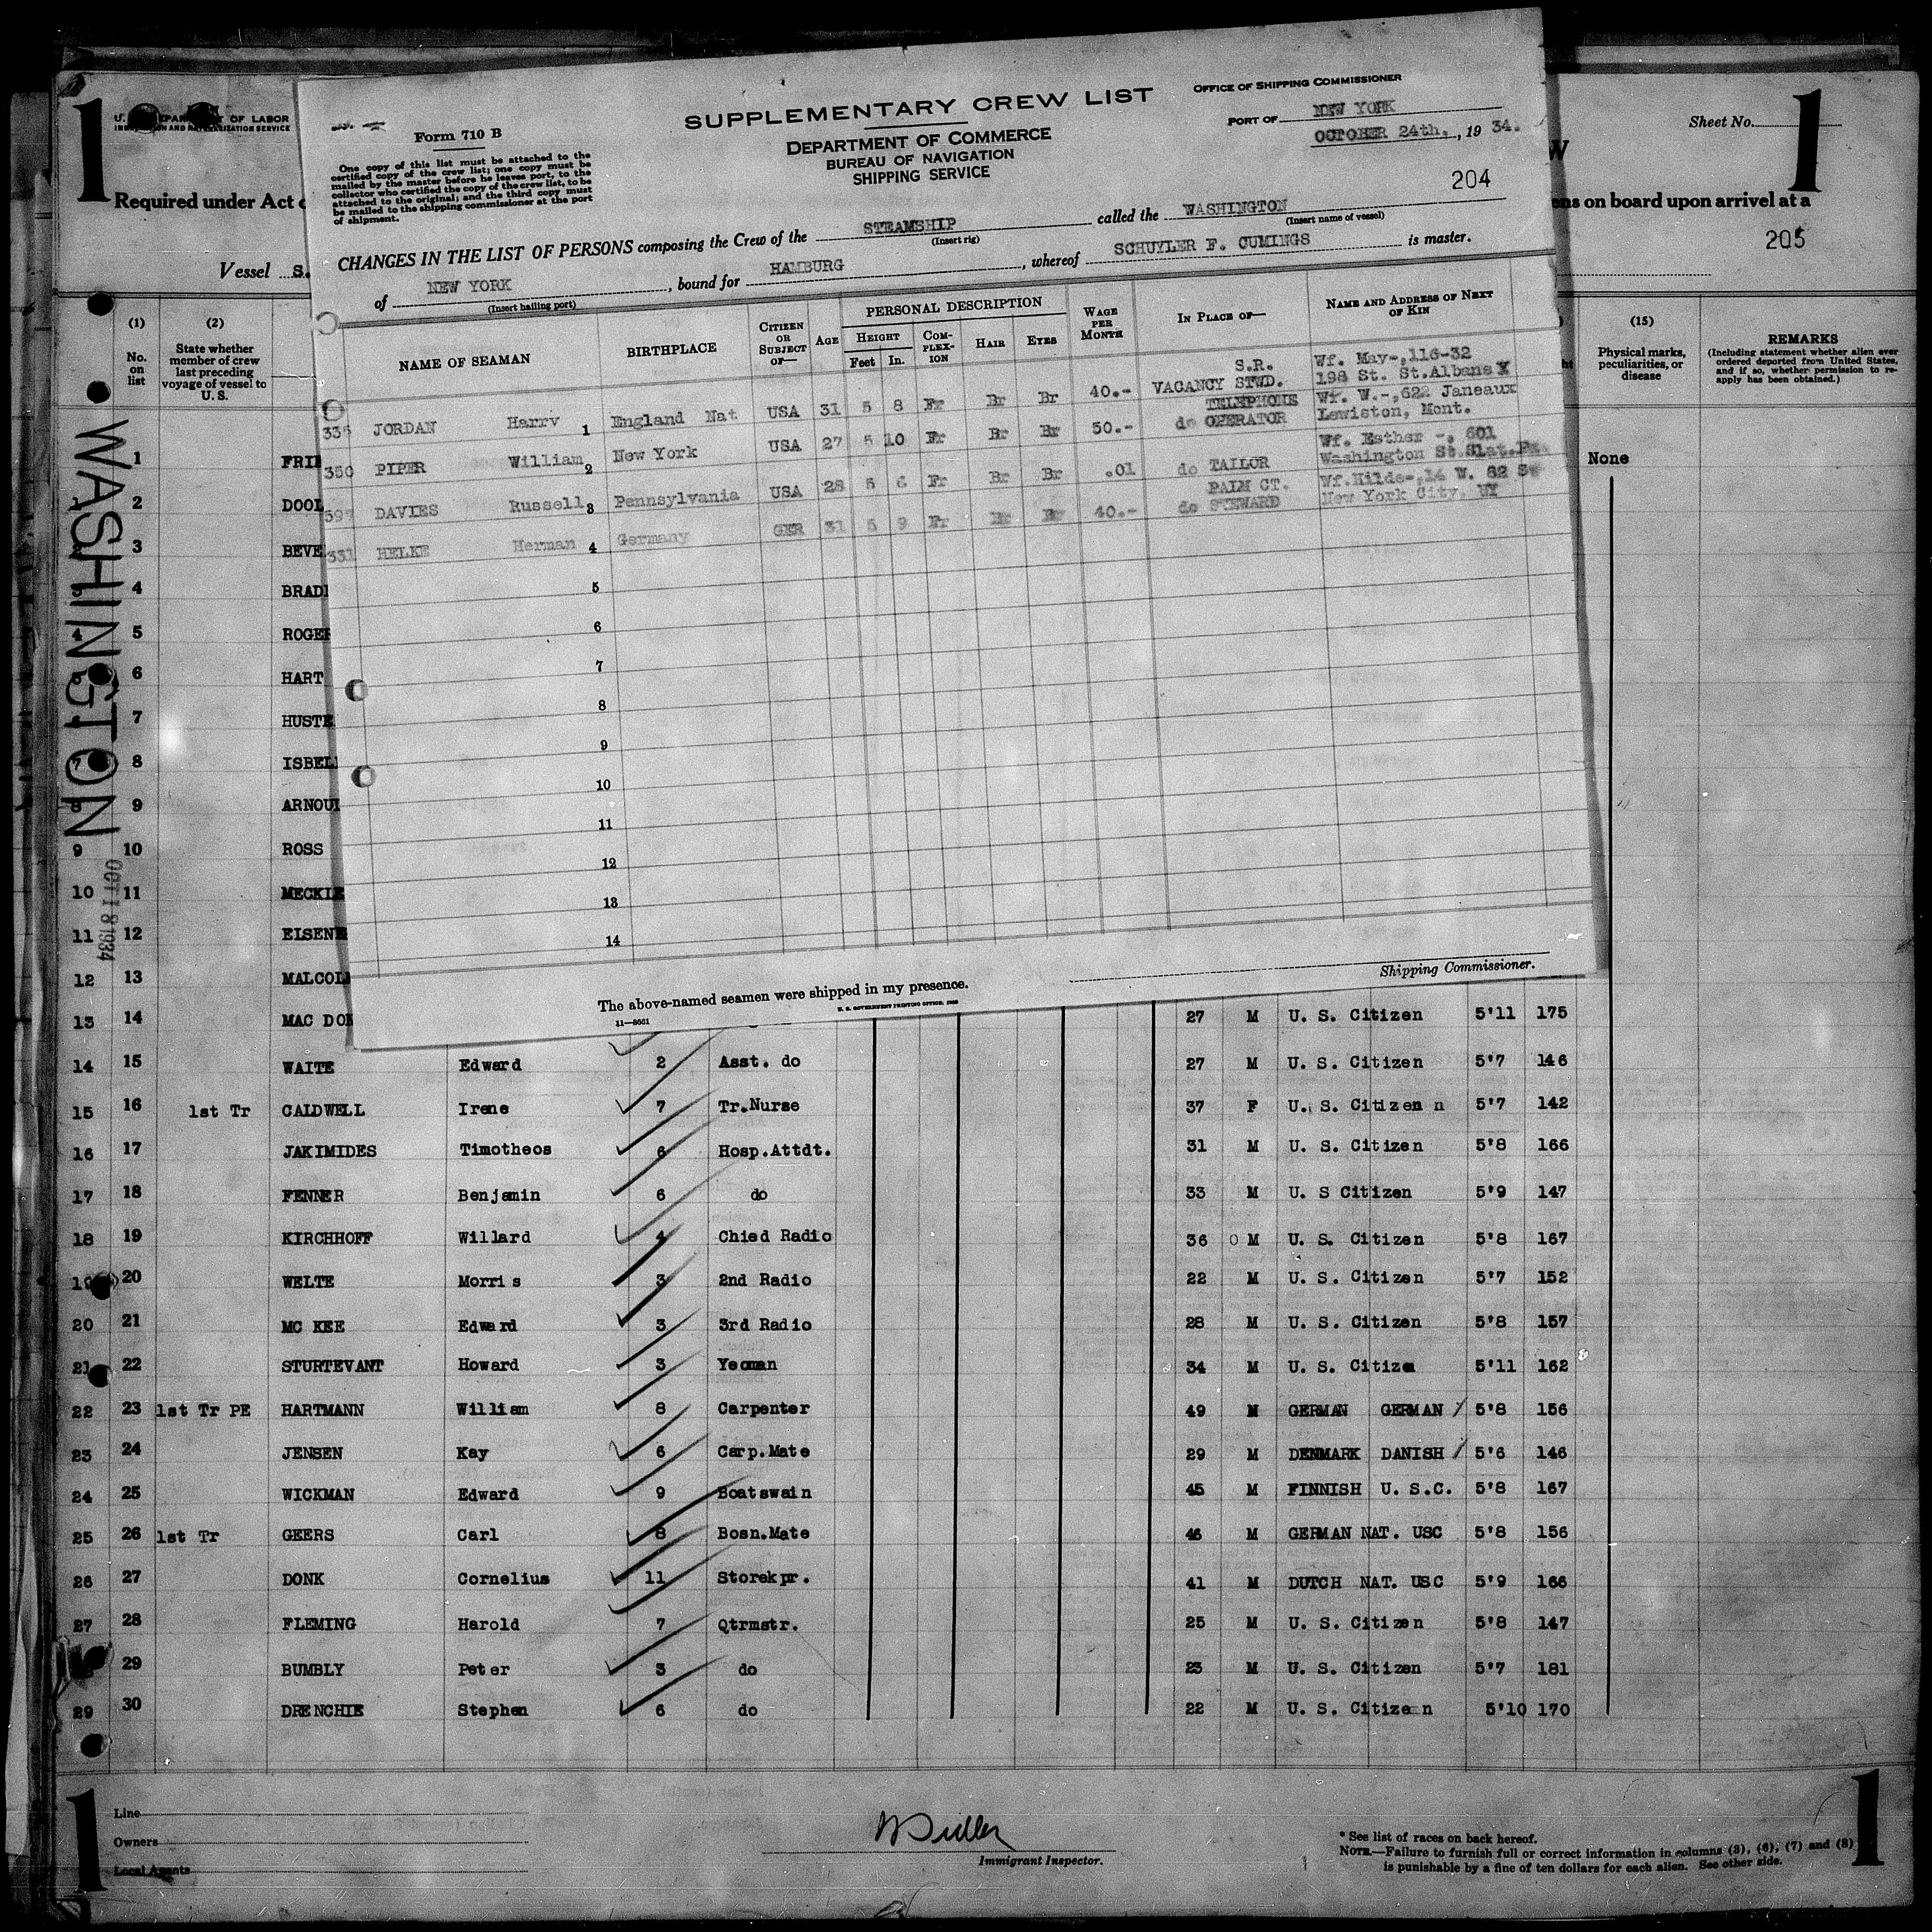 1
U. S. DEPARTMENT OF LABOR
IMMIGRATION AND NATURALIZATION SERVICE
Required under Act
Vessel S.
Form 710 B
One copy of this list must be attached to the
certified copy of the crew list; one copy must be
mailed by the master before he leaves port, to the
collector who certified the copy of the crew list, to be
attached to the original; and the third copy must
be mailed to the shipping commissioner at the port
of shipment.
SUPPLEMENTARY CREW LIST
DEPARTMENT OF COMMERCE
BUREAU OF NAVIGATION
SHIPPING SERVICE
OFFICE OF SHIPPING COMMISSIONER
PORT OF NEW YORK
OCTOBER 24th, , 19 34.
204
CHANGES IN THE LIST OF PERSONS composing the Crew of the STEAMSHIP called the WASHINGTON
(Insert rig) (Insert name of vessel)
of NEW YORK , bound for HAMBURG , whereof SCHUYLER F. CUMINGS is master.
(Insert hailing port)
NAME OF SEAMAN BIRTHPLACE CITIZEN OR SUBJECT OF— AGE PERSONAL DESCRIPTION HEIGHT Feet In. COMPLEXION HAIR EYES WAGE PER MONTH IN PLACE OF— NAME AND ADDRESS OF NEXT OF KIN
335 JORDAN Harry 1 England Nat USA 31 5 8 Fr Br Br 40.- S.R. VACANCY STWD. Wf. May-,116-32 198 St. St.Albans
350 PIPER William 2 New York USA 27 5 10 Fr Br Br 50.- do TELEPHONE OPERATOR Wf. W.-,622 Janeaux Lewiston, Mont.
597 DAVIES Russell 3 Pennsylvania USA 28 5 6 Fr Br Br .01 do TAILOR Wf. Esther -, 601 Washington St.Slat.Pa.
331 HELKE Herman 4 Germany GER 31 5 9 Fr Br Br 40.- do PALM CT. STEWARD Wf.Hilde-,14 W. 82 St New York City, NY
5
6
7
8
9
10
11
12
13
14
The above-named seamen were shipped in my presence.
Shipping Commissioner.
11—8661
U. S. GOVERNMENT PRINTING OFFICE
Sheet No.
1
W
ens on board upon arrival at a
205
(1) No. on list
(2) State whether member of crew last preceding voyage of vessel to U. S.
(15) Physical marks, peculiarities, or disease
REMARKS
(Including statement whether alien ever
ordered deported from United States,
and if so, whether permission to re-
apply has been obtained.)
WASHINGTON
OCT 18 1934
1 FRI None
2 DOOL
3 BEVE
4 BRAD
4 5 ROGE
6 HART
7 HUSTE
7 8 ISBEL
8 9 ARNOU
9 10 ROSS
10 11 MECKLE
11 12 EISENE
12 13 MALCOL
13 14 MAC DO 27 M U. S. Citizen 5'11 175
14 15 WAITE Edward 2 Asst. do 27 M U. S. Citizen 5'7 146
15 16 1st Tr CALDWELL Irene 7 Tr.Nurse 37 F U. S. Citizen n 5'7 142
16 17 JAKIMIDES Timotheos 6 Hosp.Attdt. 31 M U. S. Citizen 5'8 166
17 18 FENNER Benjamin 6 do 33 M U. S Citizen 5'9 147
18 19 KIRCHHOFF Willard 4 Chied Radio 36 O M U. S. Citizen 5'8 167
19 20 WELTE Morris 3 2nd Radio 22 M U. S. Citizen 5'7 152
20 21 MC KEE Edward 3 3rd Radio 28 M U. S. Citizen 5'8 157
21 22 STURTEVANT Howard 3 Yeoman 34 M U. S. Citize 5'11 162
22 23 1st Tr PE HARTMANN William 8 Carpenter 49 M GERMAN GERMAN / 5'8 156
23 24 JENSEN Kay 6 Carp.Mate 29 M DENMARK DANISH / 5'6 146
24 25 WICKMAN Edward 9 Boatswain 45 M FINNISH U. S.C. 5'8 167
25 26 1st Tr GEERS Carl 8 Bosn.Mate 46 M GERMAN NAT. USC 5'8 156
26 27 DONK Cornelius 11 Storekpr. 41 M DUTCH NAT. USC 5'9 166
27 28 FLEMING Harold 7 Qtrmstr. 25 M U. S. Citizen 5'8 147
29 BUMBLY Peter 3 do 23 M U. S. Citizen 5'7 181
29 30 DRENCHIE Stephen 6 do 22 M U. S. Citizen 5'10 170
1
Line
Owners
Local Agents
Immigrant Inspector.
* See list of races on back hereof.
NOTE.—Failure to furnish full or correct information in columns (3), (6), (7) and (8)
is punishable by a fine of ten dollars for each alien. See other side.
1